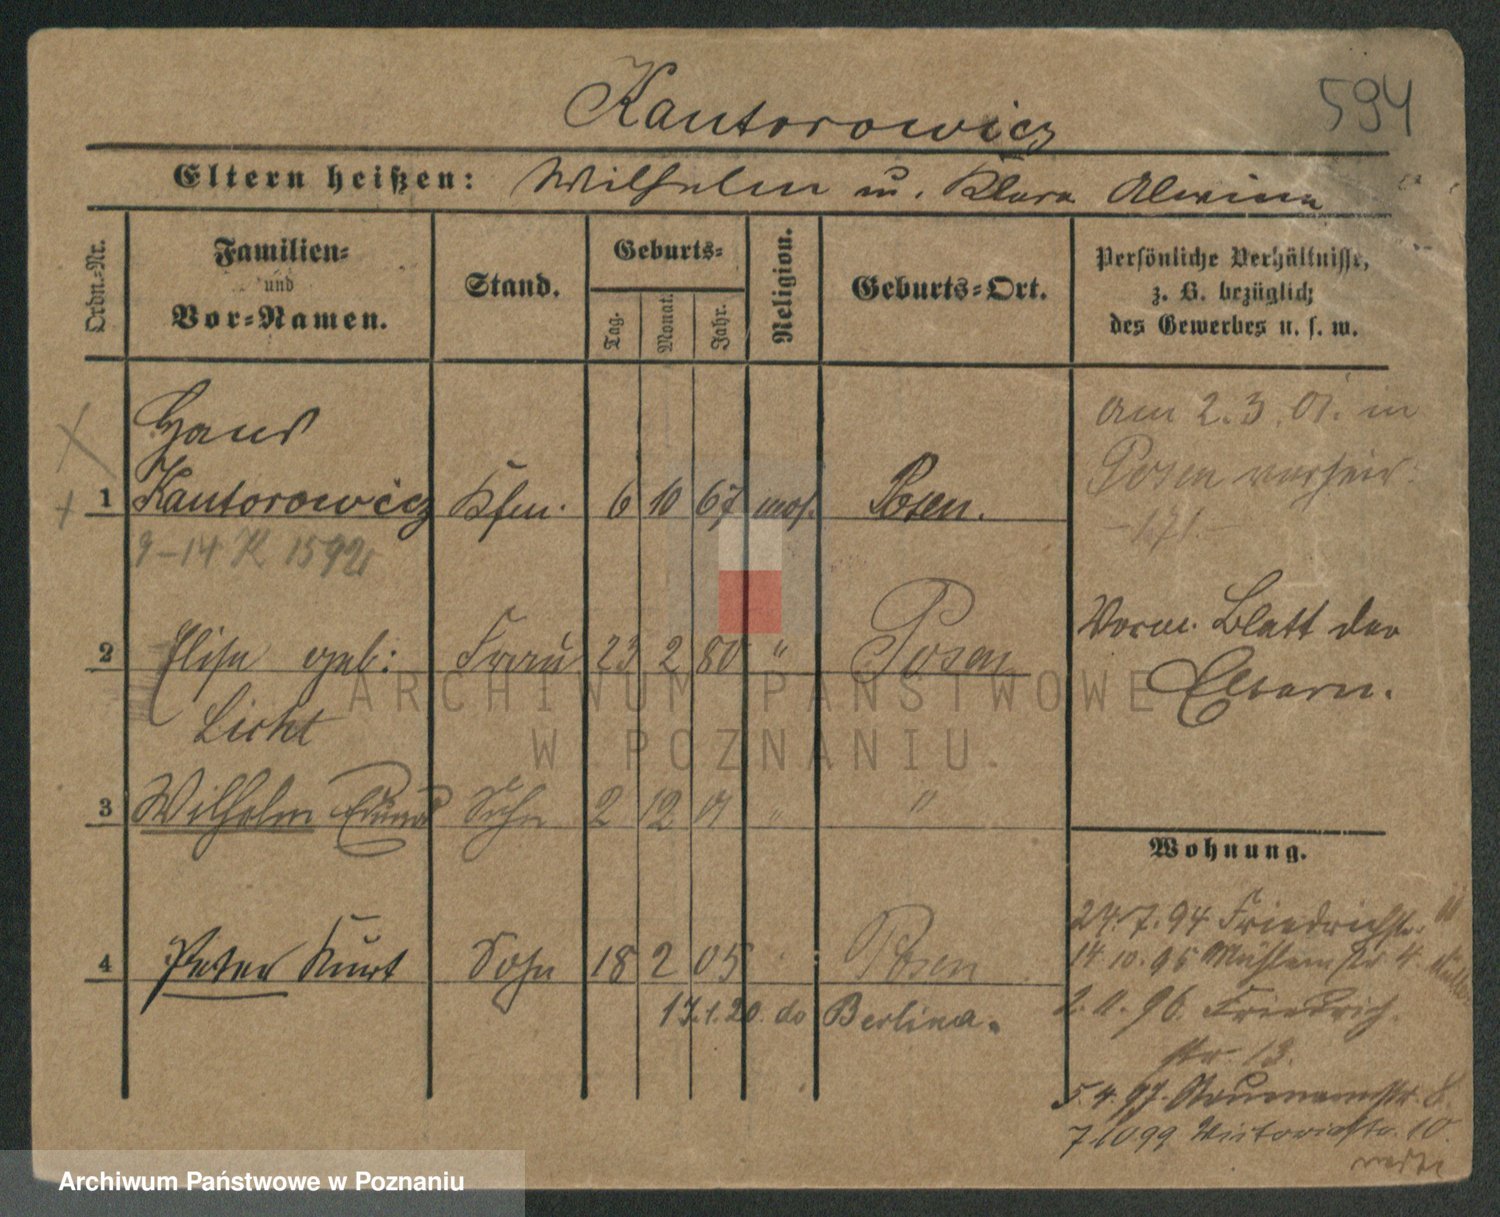 594
Kantorowicz
Eltern heißen: Wilhelm u. Klara Alwina
Ordn.-Nr.
Familien-
und
Vor-Namen.
Stand.
Geburts-
Tag.
Monat.
Jahr.
Religion.
Geburts-Ort.
Persönliche Verhältnisse,
z. B. bezüglich
des Gewerbes u. s. w.
Hans
1 Kantorowicz Kfm. 6 10 67 mos. Posen.
am 2.3.01. in
Posen verheir.
9-14 K 1592
2 Elise geb: Frau 23 2 80 " Posen
Licht
Vorm. Blatt der
Eltern.
3 Wilhelm Sohn 2 12 01 " "
4 Peter Kurt Sohn 18 2 05 Posen
17.1.20. do Berlina.
Wohnung.
24.7.94 Friedrichstr.
14.10.95 Mühlenstr 4
96. Friedrich
str. 13.
5.4.97. Naumannstr. 8.
7.10 99 Victoriastr. 10.
ARCHIWUM PAŃSTWOWE
W POZNANIU.
Archiwum Państwowe w Poznaniu